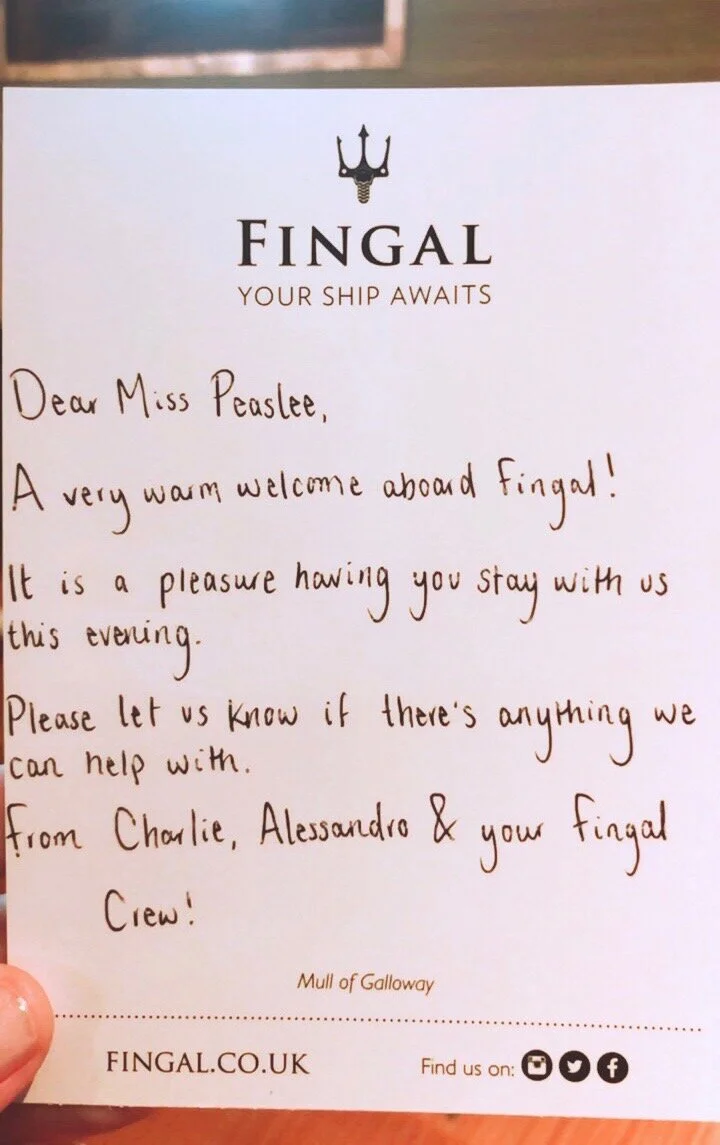 FINGAL
YOUR SHIP AWAITS
Dear Miss Peaslee,
A very warm welcome aboard Fingal!
It is a pleasure having you stay with us
this evening.
Please let us know if there's anything we
can help with.
From Charlie, Alessandro & your Fingal
Crew!
Mull of Galloway
FINGAL.CO.UK
Find us on: